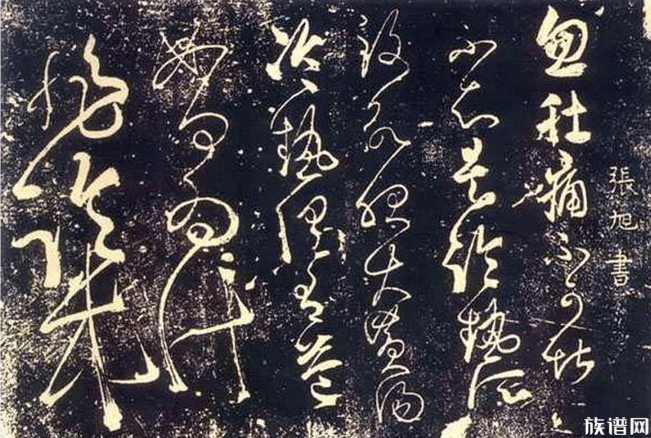 張旭書
忽肚痛不可堪
不知是冷熱所
致欲服大黃湯
冷熱俱有益
如何為計
非臨床
族谱网